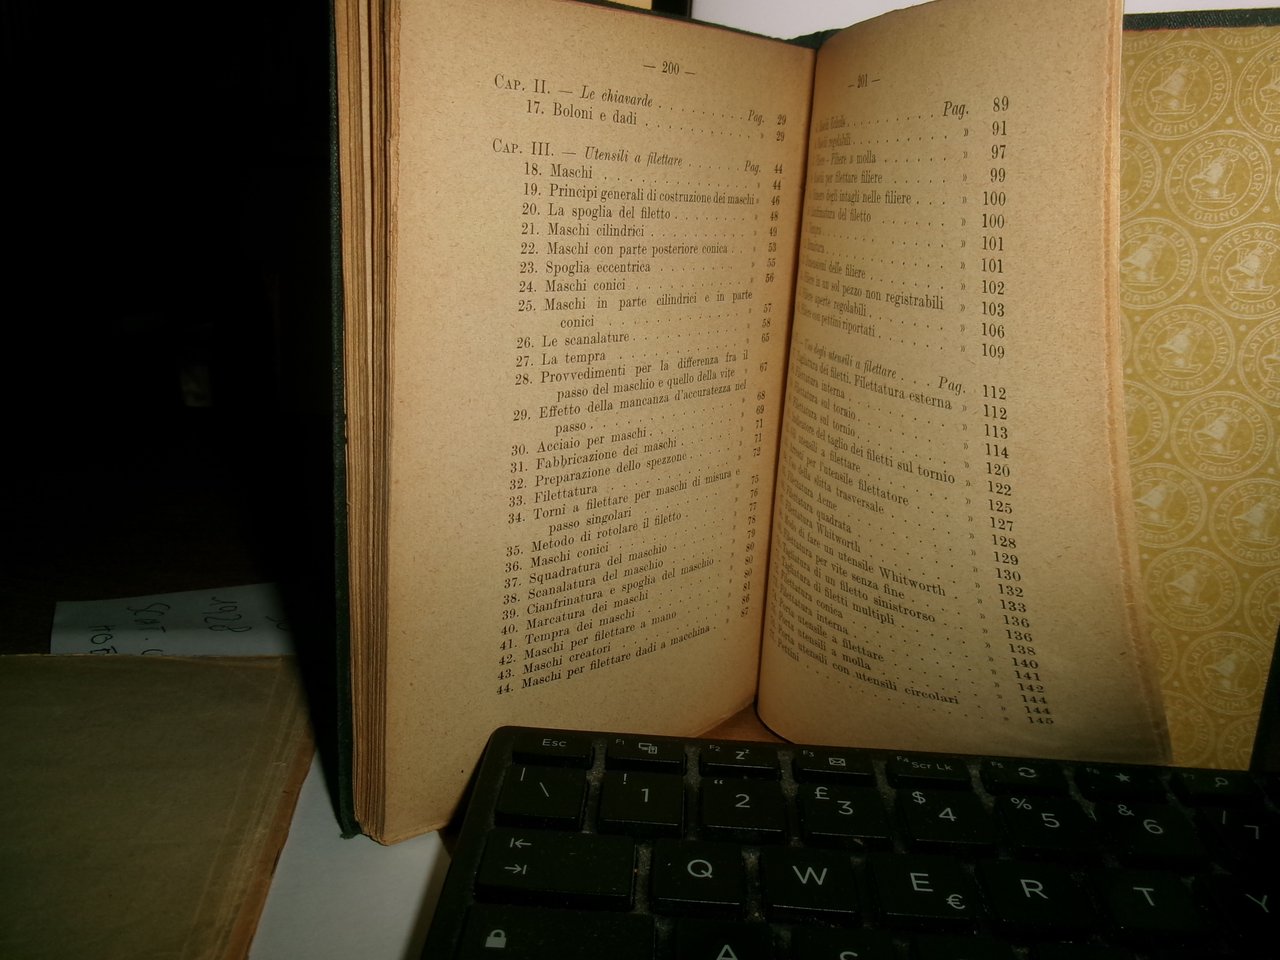 — 200 —
CAP. II. — Le chiavarde . . . . . . . . Pag. 29
17. Boloni e dadi . . . . . . . . » 29
CAP. III. — Utensili a filettare . . . . . Pag. 44
18. Maschi . . . . . . . . . . » 44
19. Principi generali di costruzione dei maschi » 46
20. La spoglia del filetto . . . . . . » 48
21. Maschi cilindrici . . . . . . . . » 49
22. Maschi con parte posteriore conica . . » 53
23. Spoglia eccentrica . . . . . . . » 55
24. Maschi conici . . . . . . . . . » 56
25. Maschi in parte cilindrici e in parte
conici . . . . . . . . . . » 57
26. Le scanalature . . . . . . . . . » 58
27. La tempra . . . . . . . . . . » 65
28. Provvedimenti per la differenza fra il
passo del maschio e quello della vite » 67
29. Effetto della mancanza d'accuratezza nel
passo . . . . . . . . . . . » 68
30. Acciaio per maschi . . . . . . . » 69
31. Fabbricazione dei maschi . . . . . » 71
32. Preparazione dello spezzone . . . . » 71
33. Filettatura . . . . . . . . . . » 72
34. Torni a filettare per maschi di misura e
passo singolari . . . . . . . . » 75
35. Metodo di rotolare il filetto . . . . » 76
36. Maschi conici . . . . . . . . . » 77
37. Squadratura del maschio . . . . . » 78
38. Scanalatura del maschio . . . . . » 79
39. Cianfrinatura e spoglia del maschio . » 80
40. Marcatura dei maschi . . . . . . » 80
41. Tempra dei maschi . . . . . . . » 80
42. Maschi per filettare a mano . . . . » 81
43. Maschi creatori . . . . . . . . » 86
44. Maschi per filettare dadi a macchina . » 87
— 201 —
Pag. 89
regolabili » 91
Filiere a molla » 97
per filettare filiere » 99
degli intagli nelle filiere » 100
del filetto » 100
» 101
» 101
delle filiere » 102
in un sol pezzo non registrabili » 103
aperte regolabili » 106
con pettini riportati » 109
Uso degli utensili a filettare . . Pag. 112
dei filetti. Filettatura esterna » 112
interna » 113
sul tornio » 114
sul tornio » 120
del taglio dei filetti sul tornio » 122
utensili a filettare » 125
per l'utensile filettatore » 127
della slitta trasversale » 128
Filettatura Acme » 129
Filettatura quadrata » 130
Filettatura Whitworth » 132
Modo di fare un utensile Whitworth » 133
Filettatura per vite senza fine » 136
Tagliatura di un filetto sinistrorso » 136
Tagliatura di filetti multipli » 138
Filettatura conica » 140
Filettatura interna » 141
Porta utensile a filettare » 142
Porta utensili a molla » 144
Porta utensili con utensili circolari » 144
Pettini » 145
S. LATTES & C. EDITORI
TORINO
1928
Esc F1 F2 zᶻ F3 F4 Scr Lk F5 F6 F7
| \ ! 1 " 2 £ 3 $ 4 % 5 & 6 / 7
Q W E € R T Y
A S